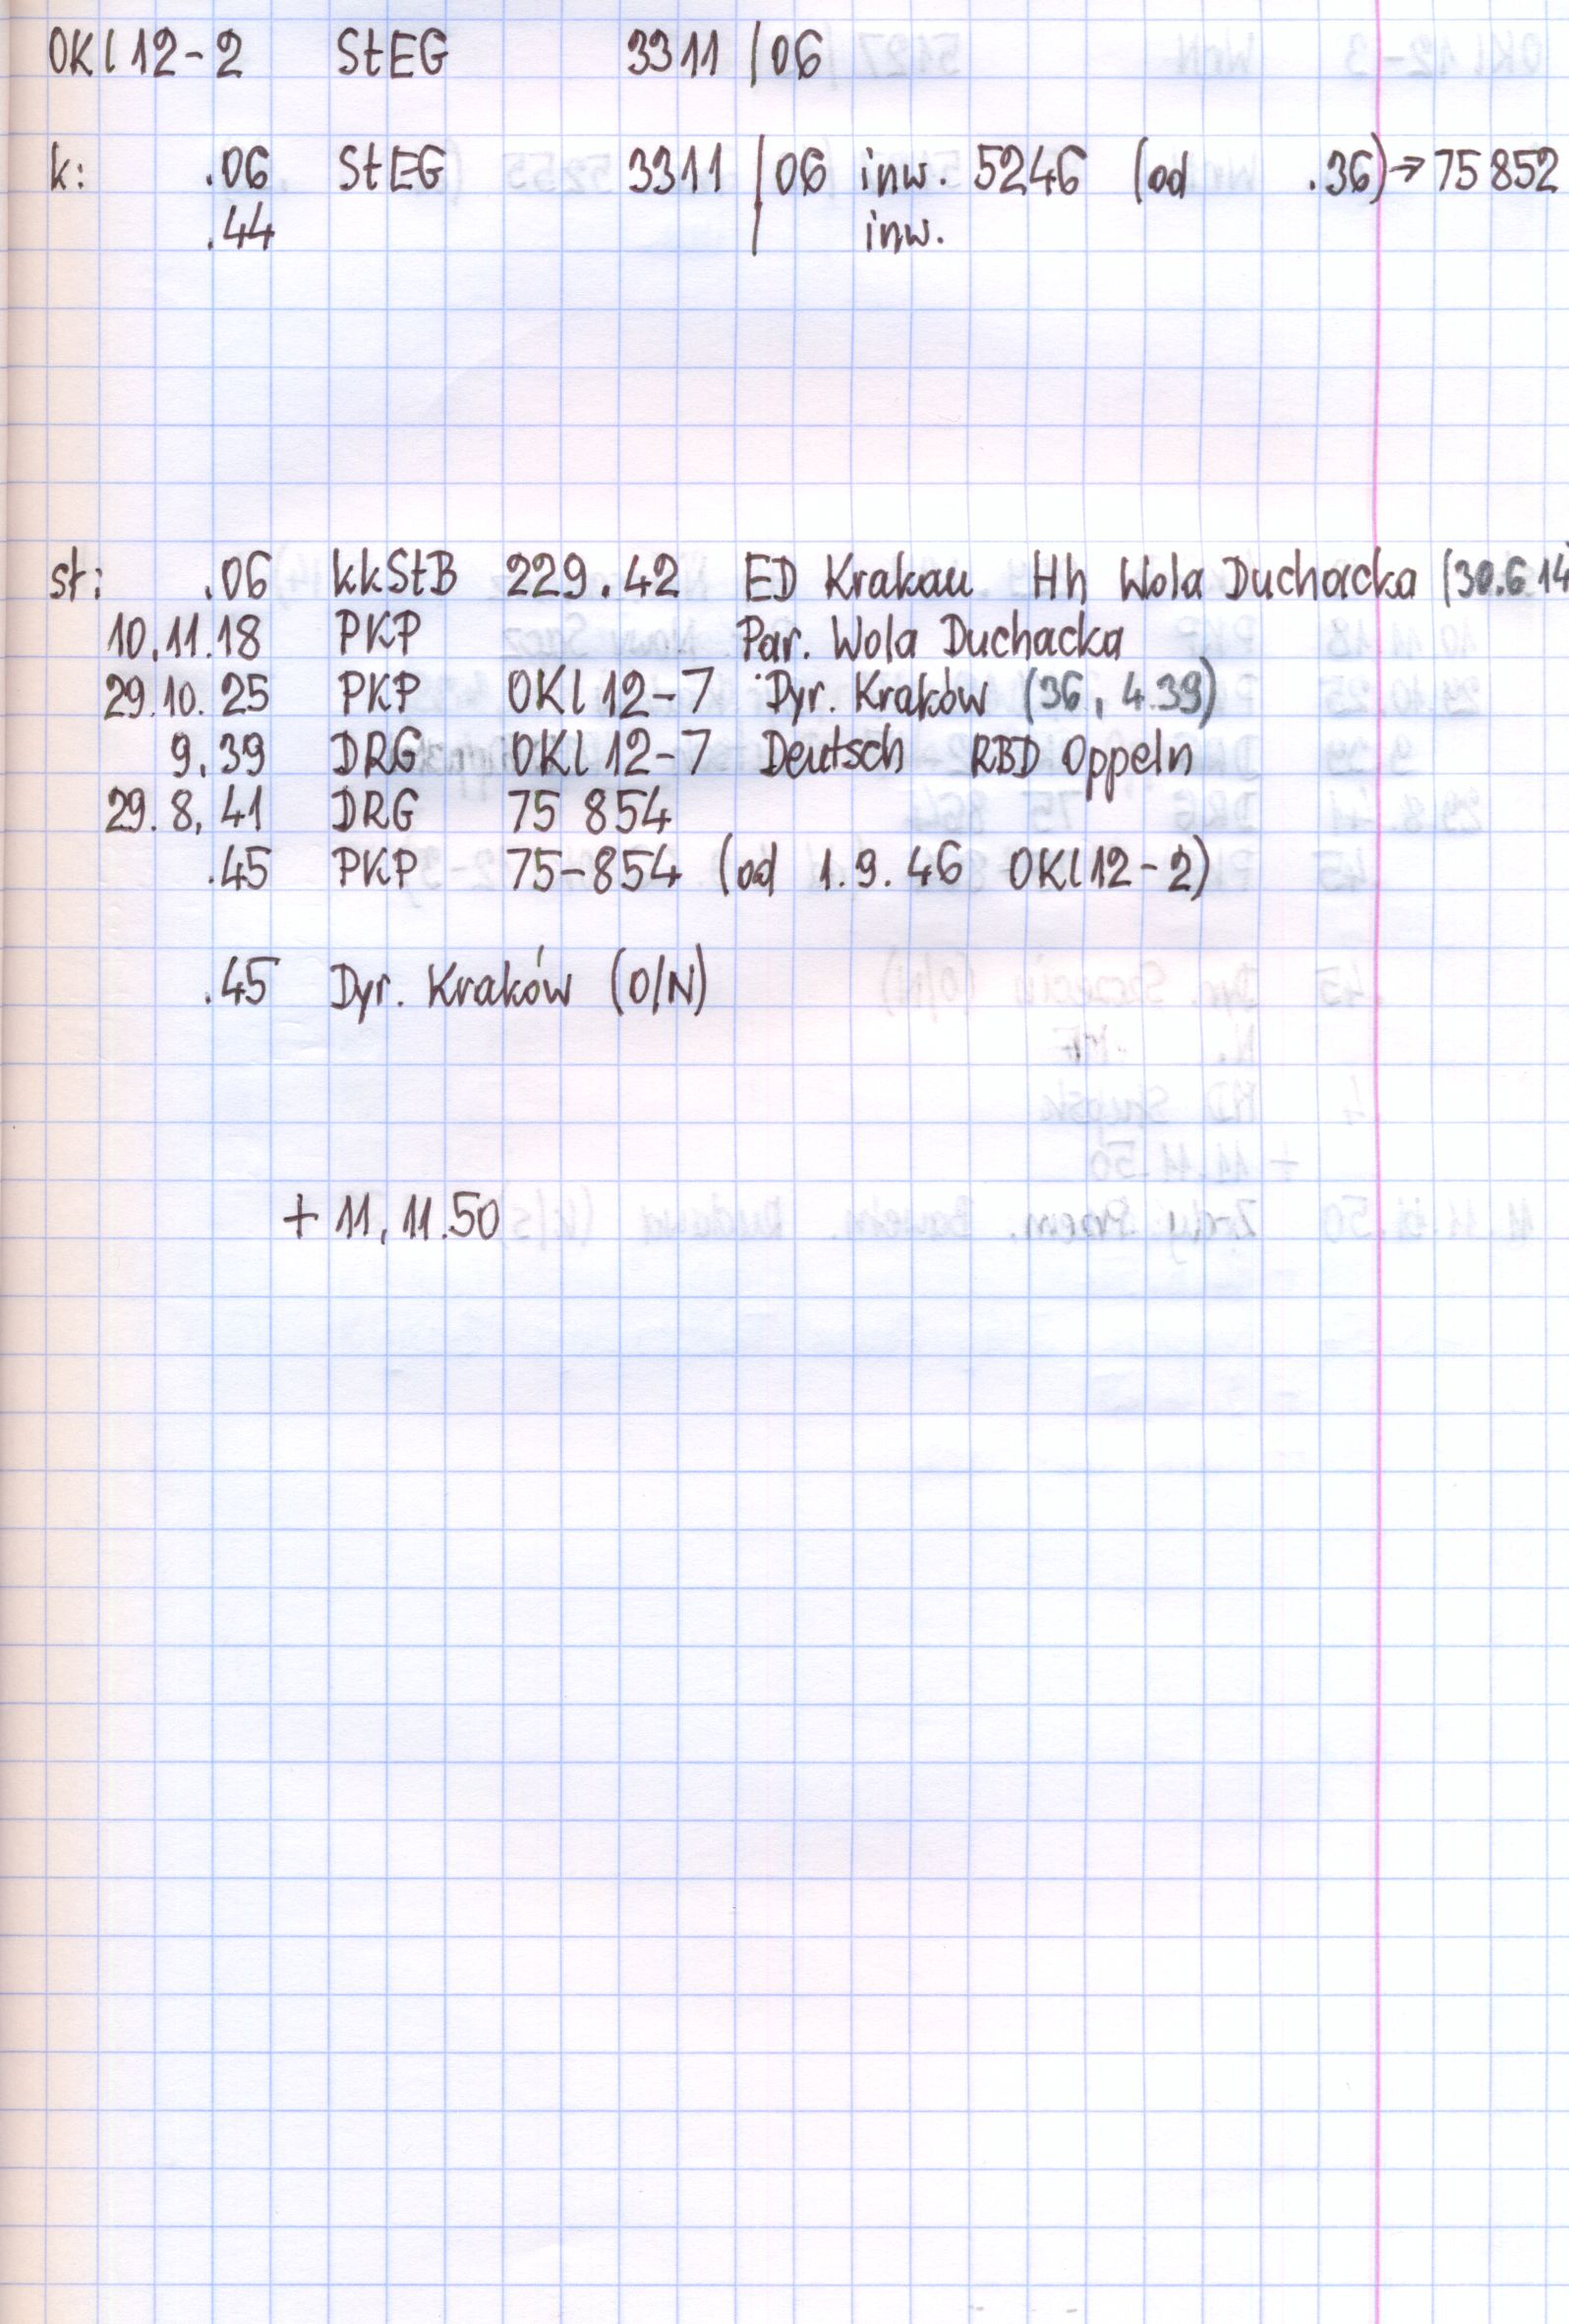 OKl 12-2 StEG 3311/06
k: .06 StEG 3311/06 inw. 5246 (od .36)→75852
.44 / inw.
st: .06 kkStB 229.42 ED Krakau Hh Wola Duchacka (30.6.14
10.11.18 PKP Par. Wola Duchacka
29.10.25 PKP OKl 12-7 Dyr. Kraków (36, 4.39)
9.39 DRG OKl 12-7 Deutsch RBD Oppeln
29.8.41 DRG 75 854
.45 PKP 75-854 (od 1.9.46 OKl12-2)
.45 Dyr. Kraków (O/N)
+ 11.11.50